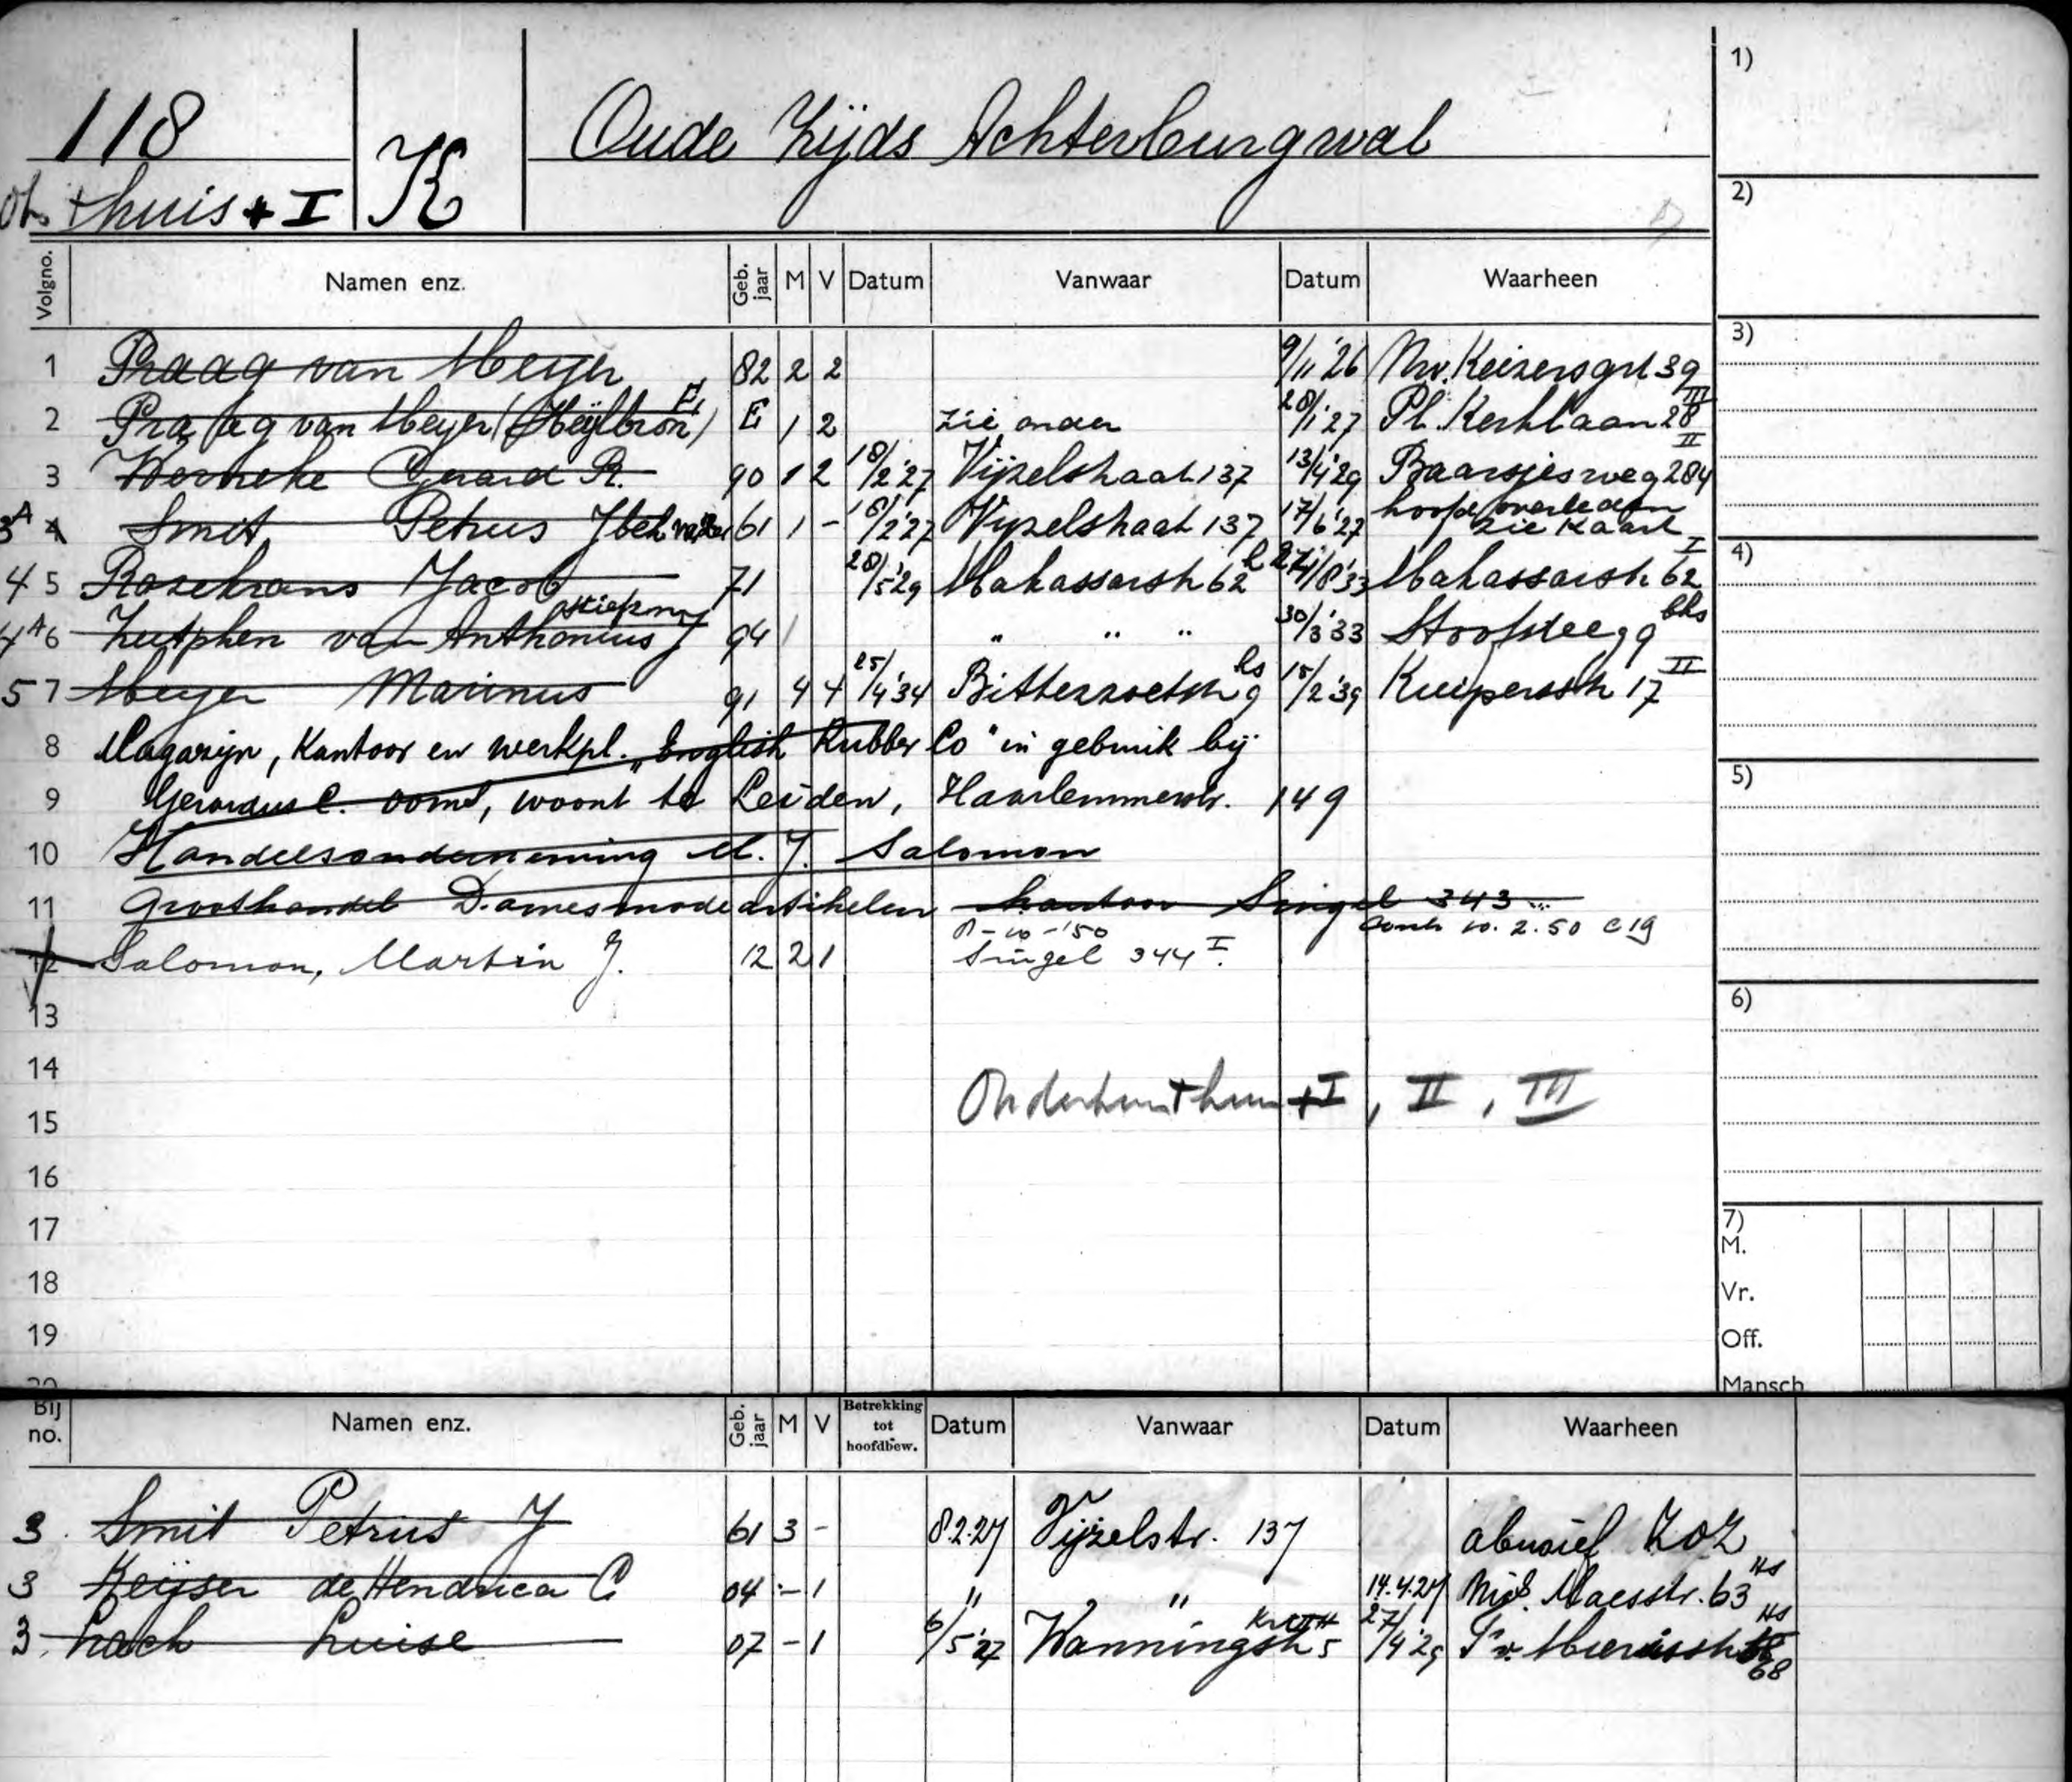 118 K Oude Zijds Achterburgwal
thuis + I
1)
2)
3)
4)
5)
6)
7)
M.
Vr.
Off.
Mansch
Volgno. Namen enz. Geb. jaar M V Datum Vanwaar Datum Waarheen
1 Praag van Meyer 82 2 2 9/11 '26 Nw. Keizersgrt 39
2 Praag van Meyer (Heijlbron) E 1 2 zie onder 28/1 '27 Pl. Kerklaan 28 III
3 Werneke Gerard R. 90 1 2 18/2 '27 Vijzelstraat 137 13/4 '29 Baarsjesweg 284 II
3A 4 Smit Petrus J 61 1 - 18/2 '27 Vijzelstraat 137 17/6 '27 hoofd overleden zie kaart
4 5 Rozekrans Jacob 71 28/5 '29 Makassarstr 62 /8 '33 Makassarstr 62 I
4A 6 Zutphen van Anthonius J stiefzn 94 1 " " " 30/3 '33 Stroofsteeg 9 bhs
5 7 Meyer Marinus 91 4 4 25/4 '34 Bitterzoetstr 9 hs 15/2 '39 Kuipersstr 17 II
8 Magazijn, Kantoor en werkpl. "English Rubber Co" in gebruik bij
9 Gerardus C. Oomt, woont te Leiden, Haarlemmerstr. 149
10 Handelsonderneming M. J. Salomon
11 Groothandel Damesmodeartikelen kantoor Singel 343
10. 2. 50 C 19
12 Salomon, Martin J. 12 2 1 Singel 344 I.
13
14
Onderhuis + huis + I, II, III
15
16
17
18
19
20
Bij no. Namen enz. Geb. jaar M V Betrekking tot hoofdbew. Datum Vanwaar Datum Waarheen
3 Smit Petrus J 61 3 - 8.2.27 Vijzelstr. 137 abusief ZOZ
3 Keijser de Hendrica C 04 - 1 " " 14.4.27 Nic. Maesstr. 63 Hs
3. Lach Luise 07 - 1 6/5 '27 Wanningstr 5 27/4 '29 Fr v. Mierisstr 68 Hs